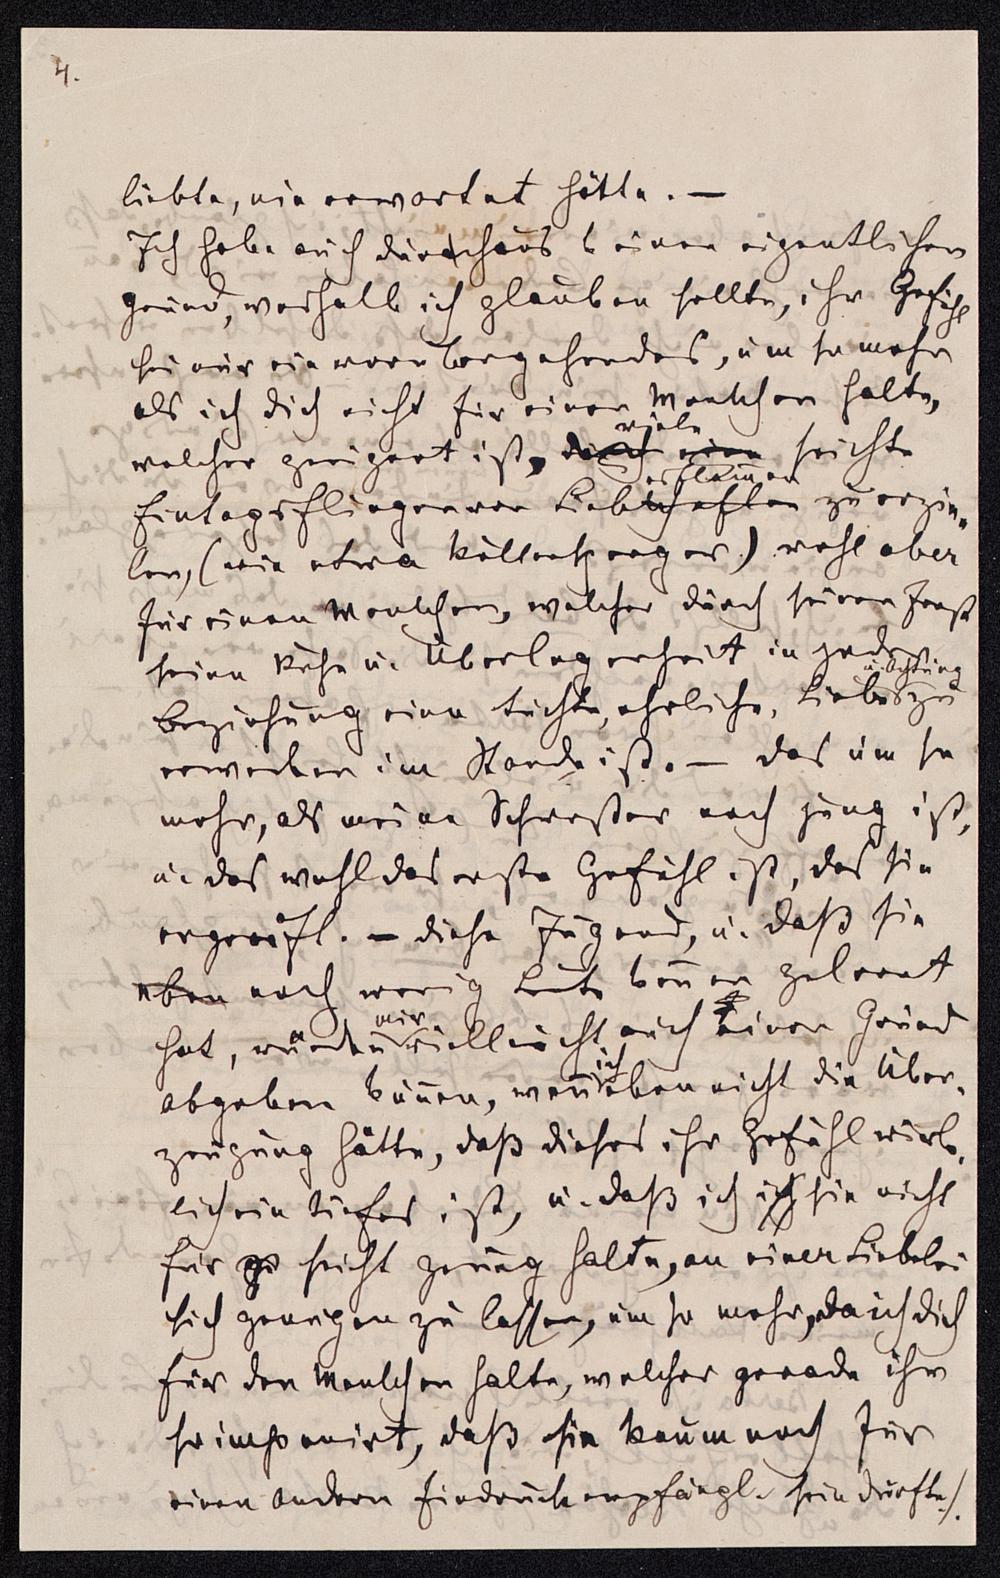 4.
liebte, nie erwartet hätte. —
Ich habe auch durchaus keinen eigentlichen
Grund, weshalb ich glauben sollte, ihr Gefühl
sei nur ein vorübergehendes, um so mehr
als ich dich nicht für einen Menschen halte,
viele
welcher geeignet ist, durch eine seichte
Eintagsfliegen von Liebschaften zu erzie„
len, (wie etwa ) wohl aber
für einen Menschen, welcher durch seinen Ernst
seine Ruhe u. Überlegenheit in jeder
u. Achtung
Beziehung eine tiefe, ehrliche, Liebe zu
erwerben im Stande ist. — das um so
mehr, als meine Schwester noch jung ist,
u. das wohl das erste Gefühl ist, das sie
ergreift. — diese Jugend, u. daß sie
eben noch wenig Leute kennen gelernt
mir
hat, würde vielleicht auch keinen Grund
ich
abgeben können, wenn eben nicht die Über„
zeugung hätte, daß dieses ihr Gefühl wirk„
lich ein tiefes ist, u. daß ich ich sie nicht
für zu seicht genug halte, an einer Liebelei
sich genügen zu lassen, um so mehr, da ich dich
für den Menschen halte, welcher gerade ihr
so imponirt, daß sie kaum noch für
einen andern Eindruck empfängl. sein dürfte./.